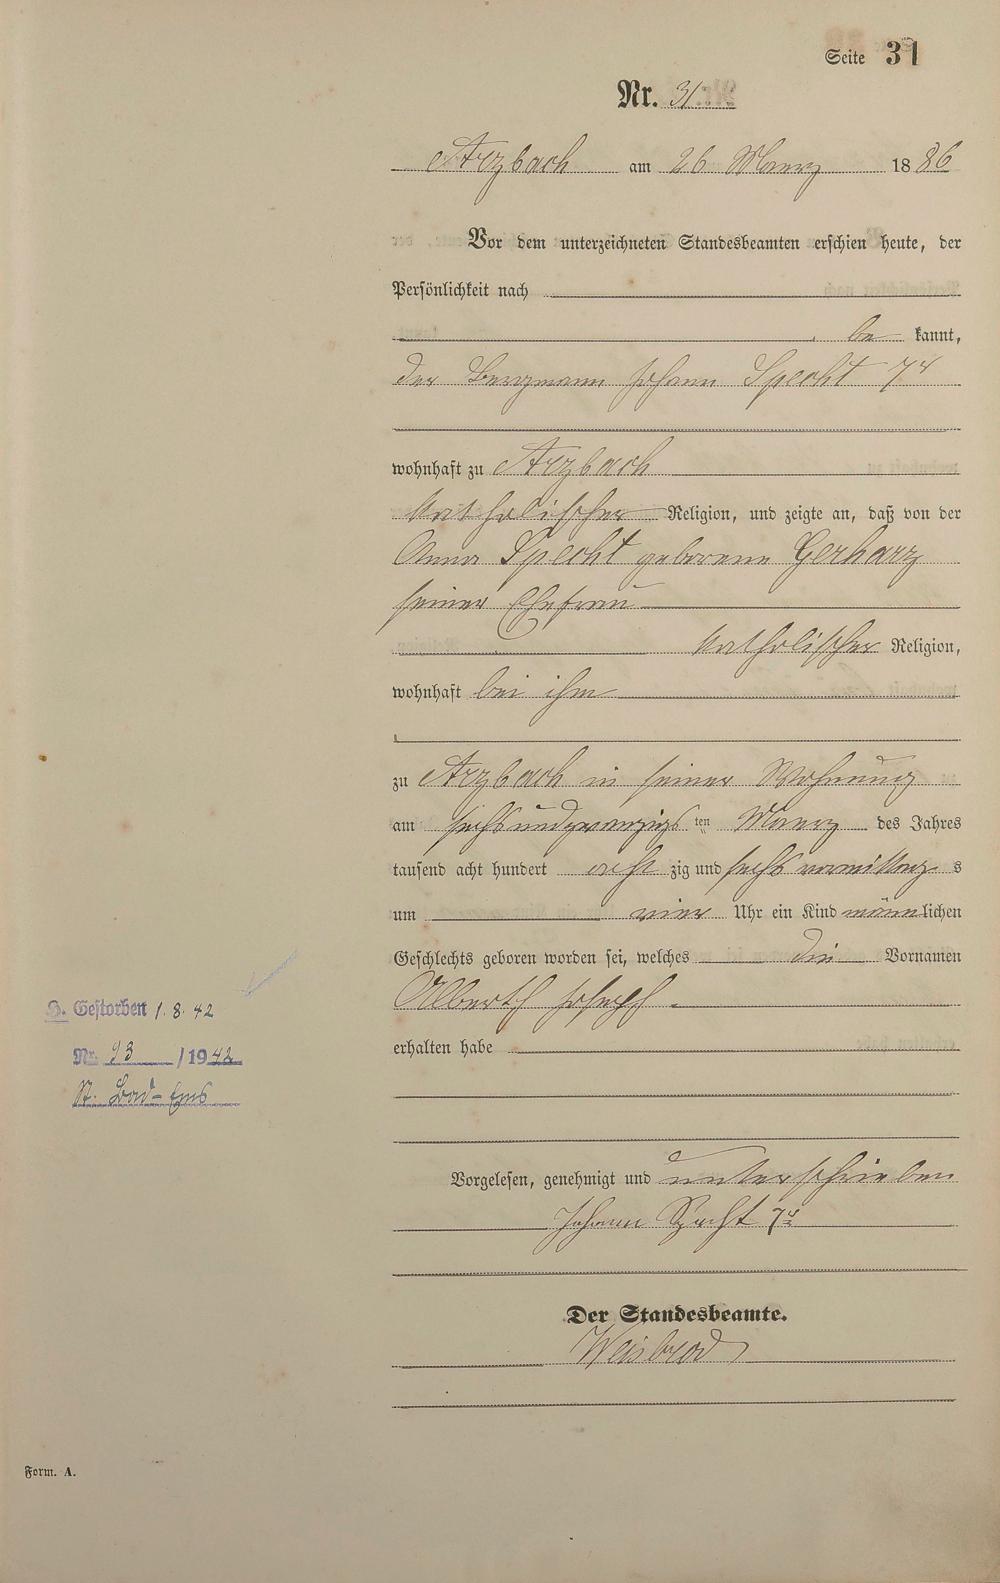 Seite 31
Nr. 31
Arzbach am 26 Maerz 1886
Vor dem unterzeichneten Standesbeamten erschien heute, der
Persönlichkeit nach
be kannt,
der Bergmann Johann Specht 7r
wohnhaft zu Arzbach
katholischer Religion, und zeigte an, daß von der
Anna Specht geborene Gerharz
seiner Ehefrau
katholischer Religion,
wohnhaft bei ihm
zu Arzbach in seiner Wohnung
am sechsundzwanzigs ten Maerz des Jahres
tausend acht hundert acht zig und sechs vormittags
um vier Uhr ein Kind männlichen
Geschlechts geboren worden sei, welches die Vornamen
Alberth Joseph
erhalten habe
H. Gestorben 1.8.42
Nr. 93 /1942
St. Bad-Ems
Vorgelesen, genehmigt und unterschrieben
Johann Specht 7r
Der Standesbeamte.
Weisbrod
Form. A.